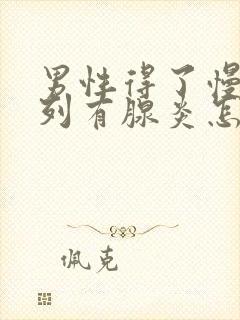 男性得了慢
列有腺炎怎
佩克